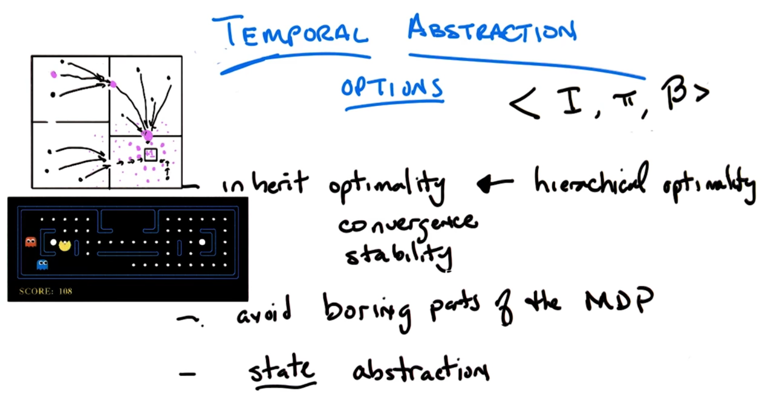 TEMPORAL ABSTRACTION
OPTIONS
< I, π, β >
- inherit optimality ← hierachical optimality
convergence
stability
SCORE: 108
- avoid boring parts of the MDP
- state abstraction